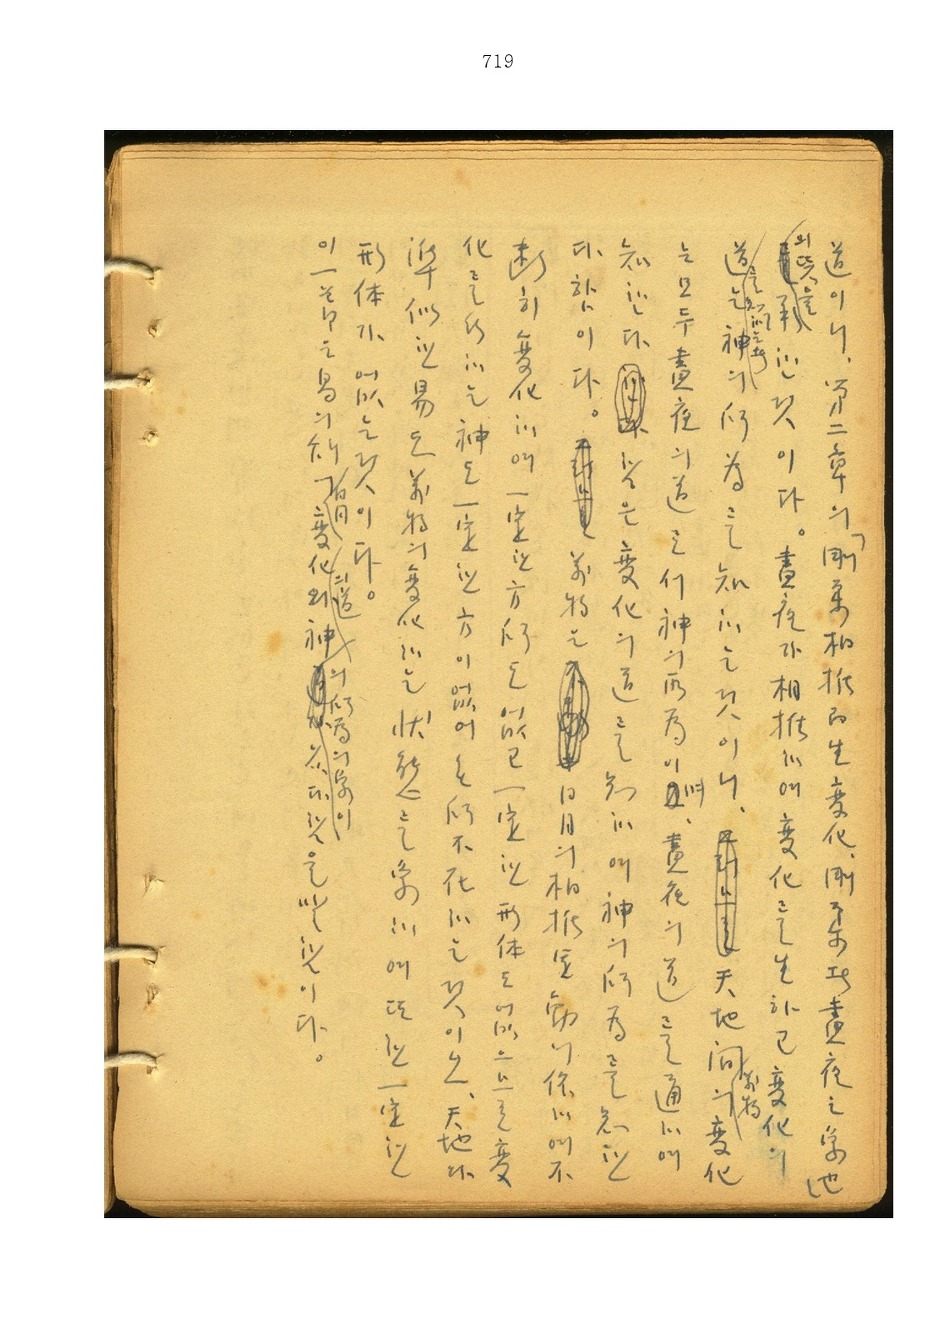 719
道이니, 第二章의 「剛柔相推而生變化, 剛柔者晝夜之象也」
의 뜻을 承한 것이다。晝夜가 相推하여 變化를 生하고 變化의
道는 神의 所爲를 知하는 것이니, 天地間의 萬物 變化
는 모두 晝夜의 道로서 神의 所爲이며, 晝夜의 道를 通하여
知한다 함은 變化의 道를 知하여 神의 所爲를 知한
다 함이다。 萬物은 日月의 相推運動에 依하여 不
斷히 變化하여 一定한 方所도 없고 一定한 形体도 없으므로 變
化를 行하는 神도 一定한 方이 없어 無所不在하는 것이오, 天地와
準似한 易도 萬物의 變化하는 狀態를 象하여 또한 一定한
形体가 없는 것이다。
이 一節은 易의 知 變化와 神 의 所爲의 象이 같다 함을 말함이다。